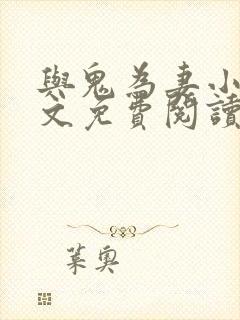 與鬼為妻小
文免費閱讀
葉奧